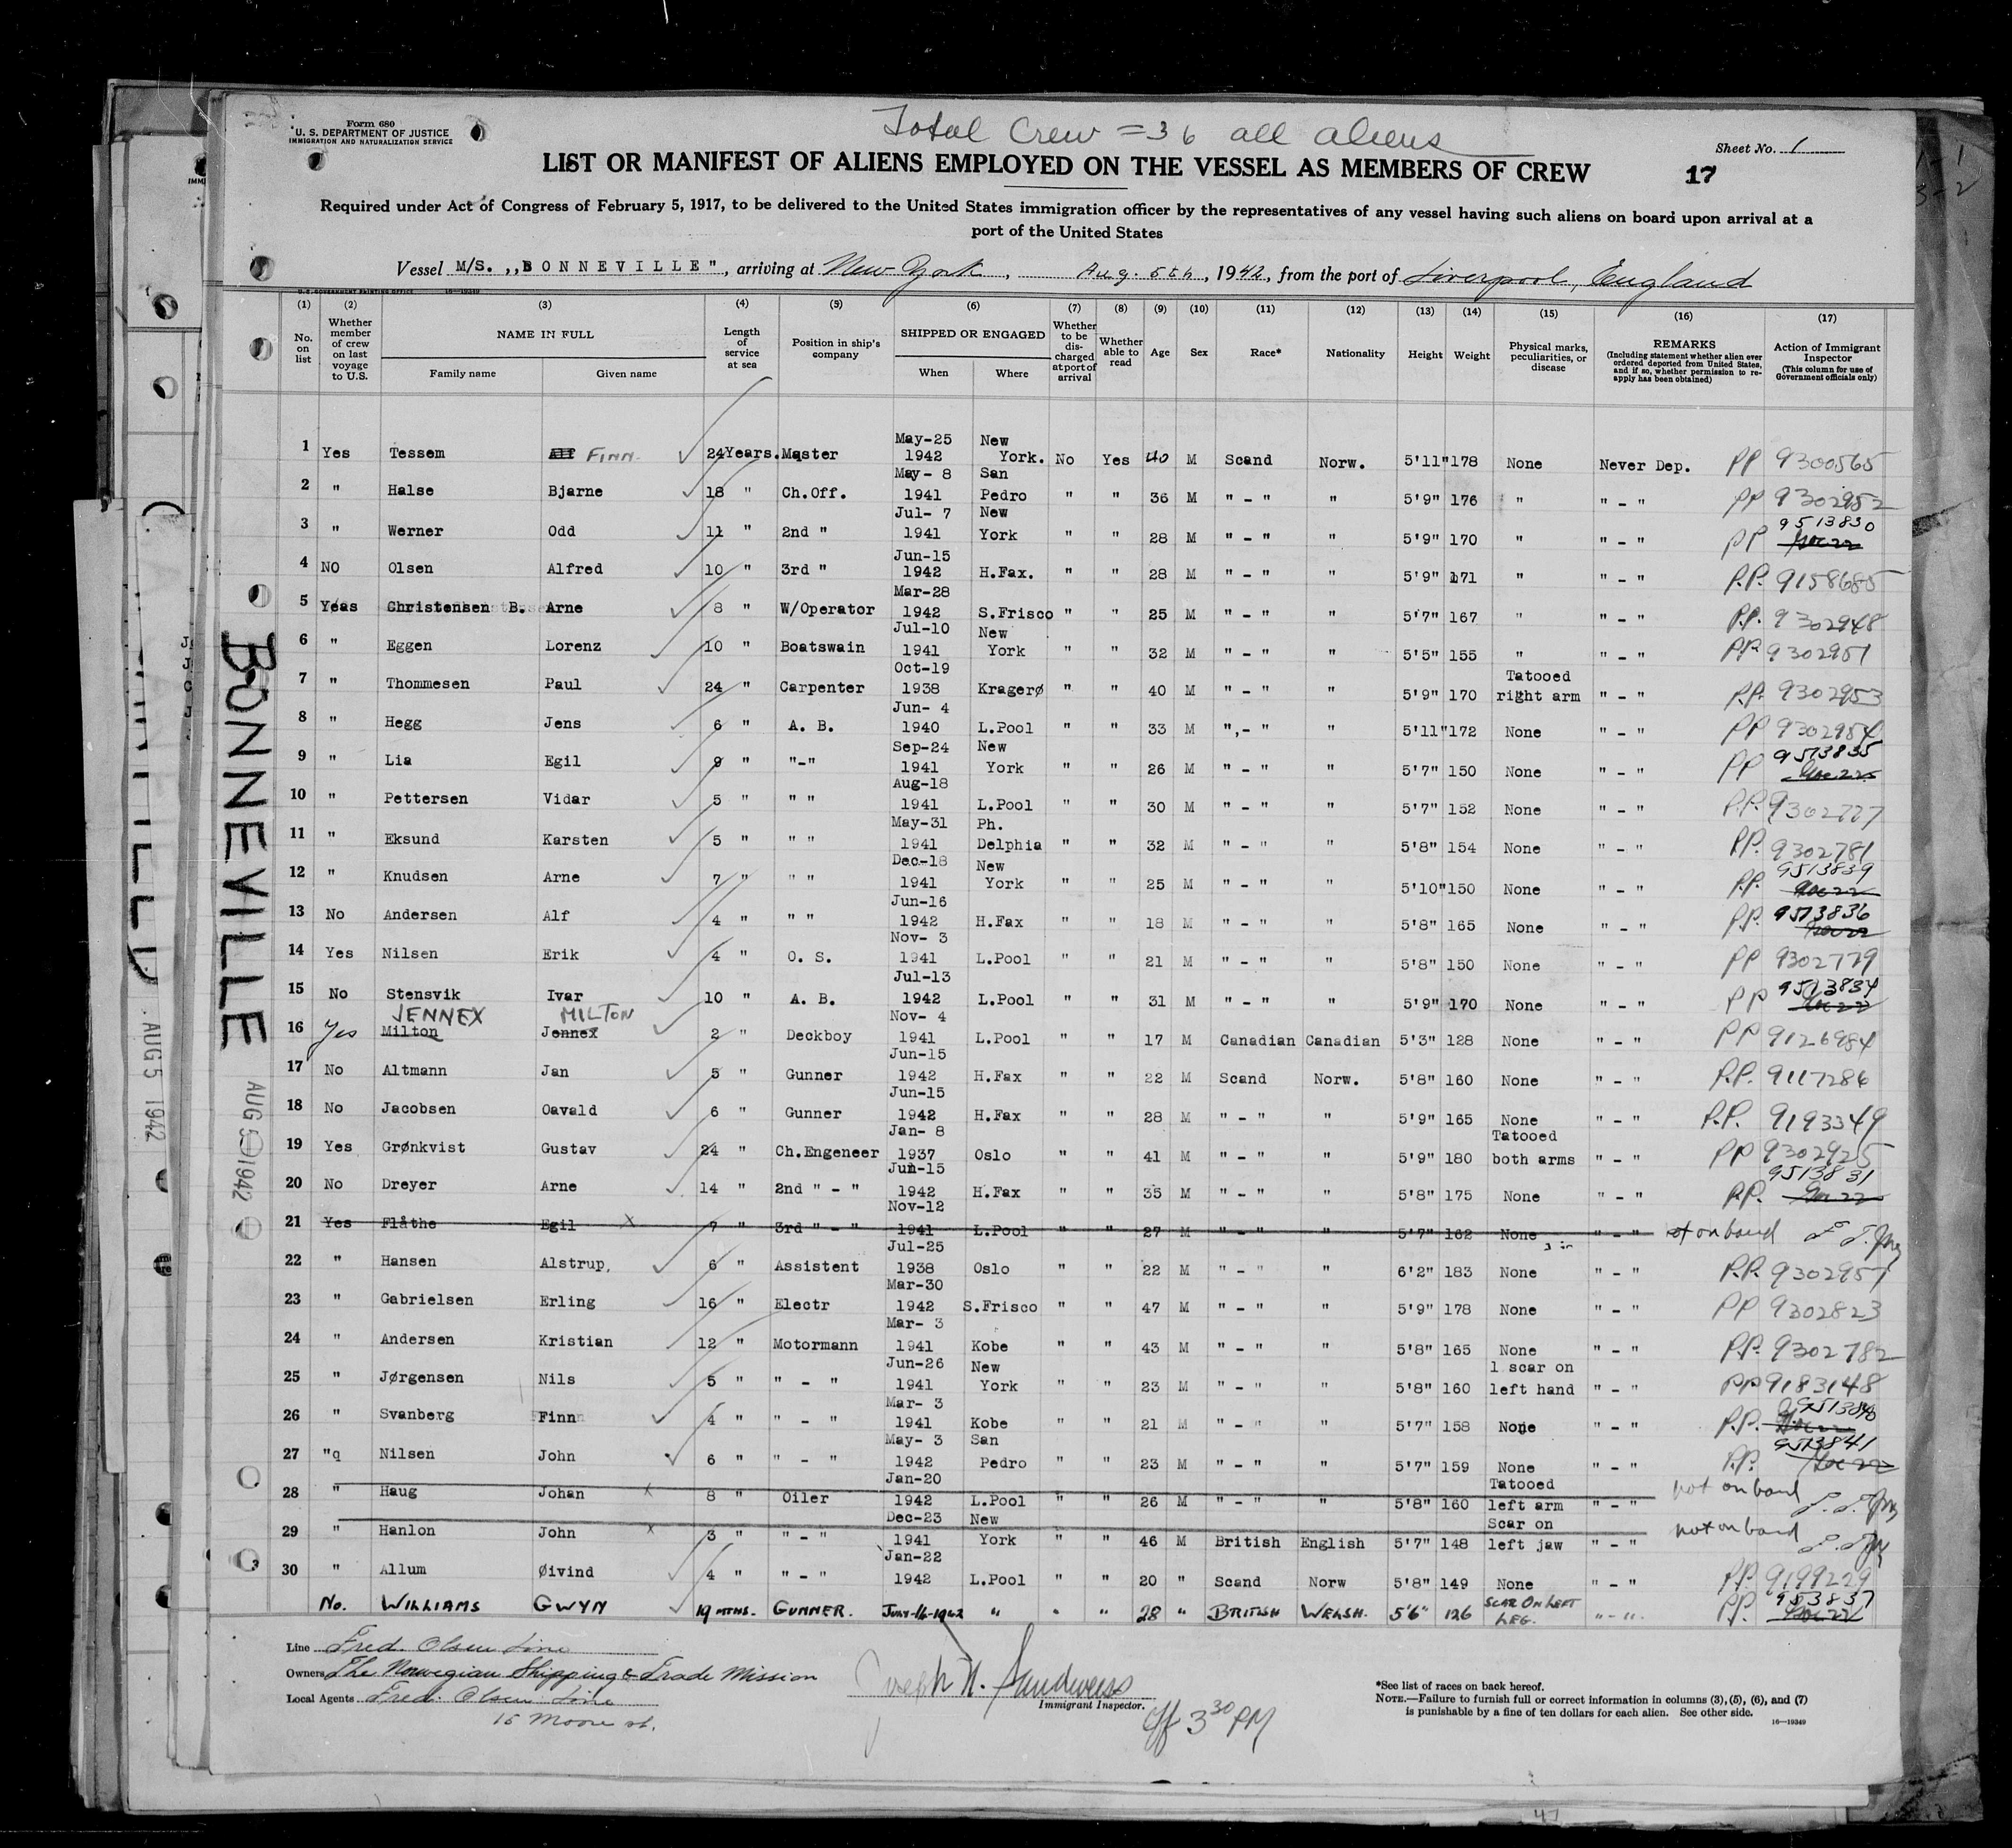 Total Crew = 36 all aliens
Form 680
U. S. DEPARTMENT OF JUSTICE
IMMIGRATION AND NATURALIZATION SERVICE
Sheet No. 1
LIST OR MANIFEST OF ALIENS EMPLOYED ON THE VESSEL AS MEMBERS OF CREW
17
Required under Act of Congress of February 5, 1917, to be delivered to the United States immigration officer by the representatives of any vessel having such aliens on board upon arrival at a
port of the United States
Vessel M/S. ,,BONNEVILLE", arriving at New York, Aug. 5th, 1942, from the port of Liverpool, England
(1) (2) (3) (4) (5) (6) (7) (8) (9) (10) (11) (12) (13) (14) (15) (16) (17)
No. on list
Whether member of crew on last voyage to U.S.
NAME IN FULL
Family name Given name
Length of service at sea
Position in ship's company
SHIPPED OR ENGAGED
When Where
Whether to be discharged at port of arrival
Whether able to read
Age
Sex
Race*
Nationality
Height
Weight
Physical marks, peculiarities, or disease
REMARKS
(Including statement whether alien ever ordered deported from United States, and if so, whether permission to reapply has been obtained)
Action of Immigrant Inspector
(This column for use of Government officials only)
1 Yes Tessem Alf FINN 24 Years. Master May-25 1942 New York. No Yes 40 M Scand Norw. 5'11" 178 None Never Dep. PP 9300565
2 " Halse Bjarne 18 " Ch.Off. May- 8 1941 San Pedro " " 36 M " - " " 5'9" 176 " " - " PP 9302952
3 " Werner Odd 11 " 2nd " Jul- 7 1941 New York " " 28 M " - " " 5'9" 170 " " - " PP 9513830
4 NO Olsen Alfred 10 " 3rd " Jun-15 1942 H.Fax. " " 28 M " - " " 5'9" 171 " " - " P.P. 9158685
5 Yeas Christensen B. Arne 8 " W/Operator Mar-28 1942 S.Frisco " " 25 M " - " " 5'7" 167 " " - " P.P. 9302948
6 " Eggen Lorenz 10 " Boatswain Jul-10 1941 New York " " 32 M " - " " 5'5" 155 " " - " PP 9302951
7 " Thommesen Paul 24 " Carpenter Oct-19 1938 Kragerø " " 40 M " - " " 5'9" 170 Tatooed right arm " - " P.P. 9302953
8 " Hegg Jens 6 " A. B. Jun- 4 1940 L.Pool " " 33 M ",- " " 5'11" 172 None " - " PP 9302954
9 " Lia Egil 9 " "-" Sep-24 1941 New York " " 26 M " - " " 5'7" 150 None " - " PP 9513835
10 " Pettersen Vidar 5 " " " Aug-18 1941 L.Pool " " 30 M " - " " 5'7" 152 None " - " P.P. 9302777
11 " Eksund Karsten 5 " " " May-31 1941 Ph. Delphia " " 32 M " - " " 5'8" 154 None " - " P.P. 9302781
12 " Knudsen Arne 7 " " " Dec-18 1941 New York " " 25 M " - " " 5'10" 150 None " - " P.P. 9513839
13 No Andersen Alf 4 " " " Jun-16 1942 H.Fax " " 18 M " - " " 5'8" 165 None " - " PP. 9513836
14 Yes Nilsen Erik 4 " O. S. Nov- 3 1941 L.Pool " " 21 M " - " " 5'8" 150 None " - " PP 9302779
15 No Stensvik Ivar 10 " A. B. Jul-13 1942 L.Pool " " 31 M " - " " 5'9" 170 None " - " PP 9513834
JENNEX MILTON
16 Yes Milton Jennex 2 " Deckboy Nov- 4 1941 L.Pool " " 17 M Canadian Canadian 5'3" 128 None " - " PP 9126984
17 No Altmann Jan 5 " Gunner Jun-15 1942 H.Fax " " 22 M Scand Norw. 5'8" 160 None " - " P.P. 9117286
18 No Jacobsen Oavald 6 " Gunner Jun-15 1942 H.Fax " " 28 M " - " " 5'9" 165 None " - " P.P. 9193349
19 Yes Grønkvist Gustav 24 " Ch.Engeneer Jan- 8 1937 Oslo " " 41 M " - " " 5'9" 180 Tatooed both arms " - " PP 9302925
20 No Dreyer Arne 14 " 2nd " - " Jun-15 1942 H.Fax " " 35 M " - " " 5'8" 175 None " - " P.P. 9513831
21 Yes Flåthe Egil X 7 " 3rd " - " Nov-12 1941 L.Pool " " 27 M " - " " 5'7" 162 None " - " not on board
22 " Hansen Alstrup, 6 " Assistent Jul-25 1938 Oslo " " 22 M " - " " 6'2" 183 None " - " P.P. 9302957
23 " Gabrielsen Erling 16 " Electr Mar-30 1942 S.Frisco " " 47 M " - " " 5'9" 178 None " - " PP 9302823
24 " Andersen Kristian 12 " Motormann Mar- 3 1941 Kobe " " 43 M " - " " 5'8" 165 None " - " P.P. 9302782
25 " Jørgensen Nils 5 " " - " Jun-26 1941 New York " " 23 M " - " " 5'8" 160 1 scar on left hand " - " PP 9183148
26 " Svanberg Finn 4 " " - " Mar- 3 1941 Kobe " " 21 M " - " " 5'7" 158 None " - " P.P. 9513840
27 "q Nilsen John 6 " " - " May- 3 1942 San Pedro " " 23 M " - " " 5'7" 159 None " - " P.P. 9513841
28 " Haug Johan X 8 " Oiler Jan-20 1942 L.Pool " " 26 M " - " " 5'8" 160 Tatooed left arm " - " not on board
29 " Hanlon John X 3 " " - " Dec-23 1941 New York " " 46 M British English 5'7" 148 Scar on left jaw " - " not on board
30 " Allum Øivind 4 " " - " Jan-22 1942 L.Pool " " 20 " Scand Norw 5'8" 149 None " - " PP. 9199229
No. WILLIAMS GWYN 19 MTHS. GUNNER. JULY-16-1942 " " " 28 " BRITISH WELSH. 5'6" 126 SCAR ON LEFT LEG. " - " PP. 9513837
Line Fred. Olsen Line
Owners The Norwegian Shipping & Trade Mission
Local Agents Fred. Olsen Line
15 Moore st.
Joseph N. Sandweiss
Immigrant Inspector.
Off 3 30 PM
*See list of races on back hereof.
NOTE.—Failure to furnish full or correct information in columns (3), (5), (6), and (7)
is punishable by a fine of ten dollars for each alien. See other side.
16—19349
BONNEVILLE
AUG 5 1942
AUG 5 1942
47